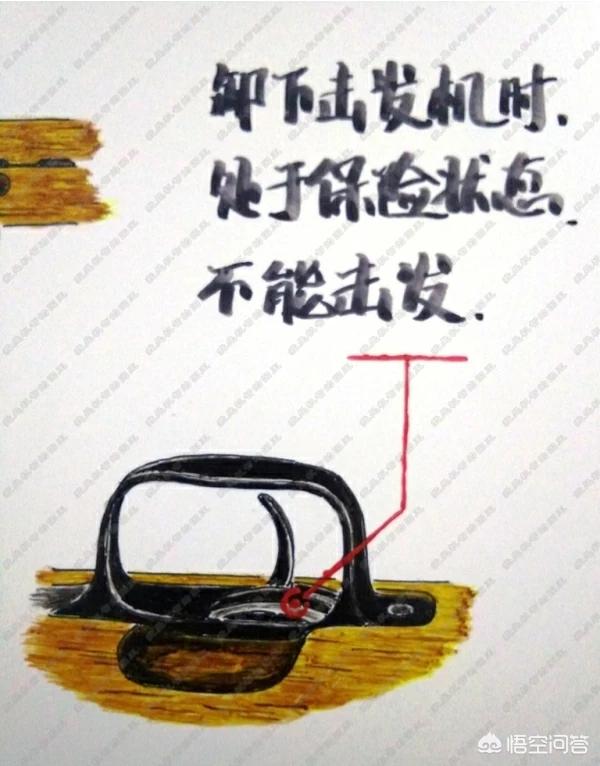 卸下击发机时.
处于保险状态.
不能击发.
悟空问答